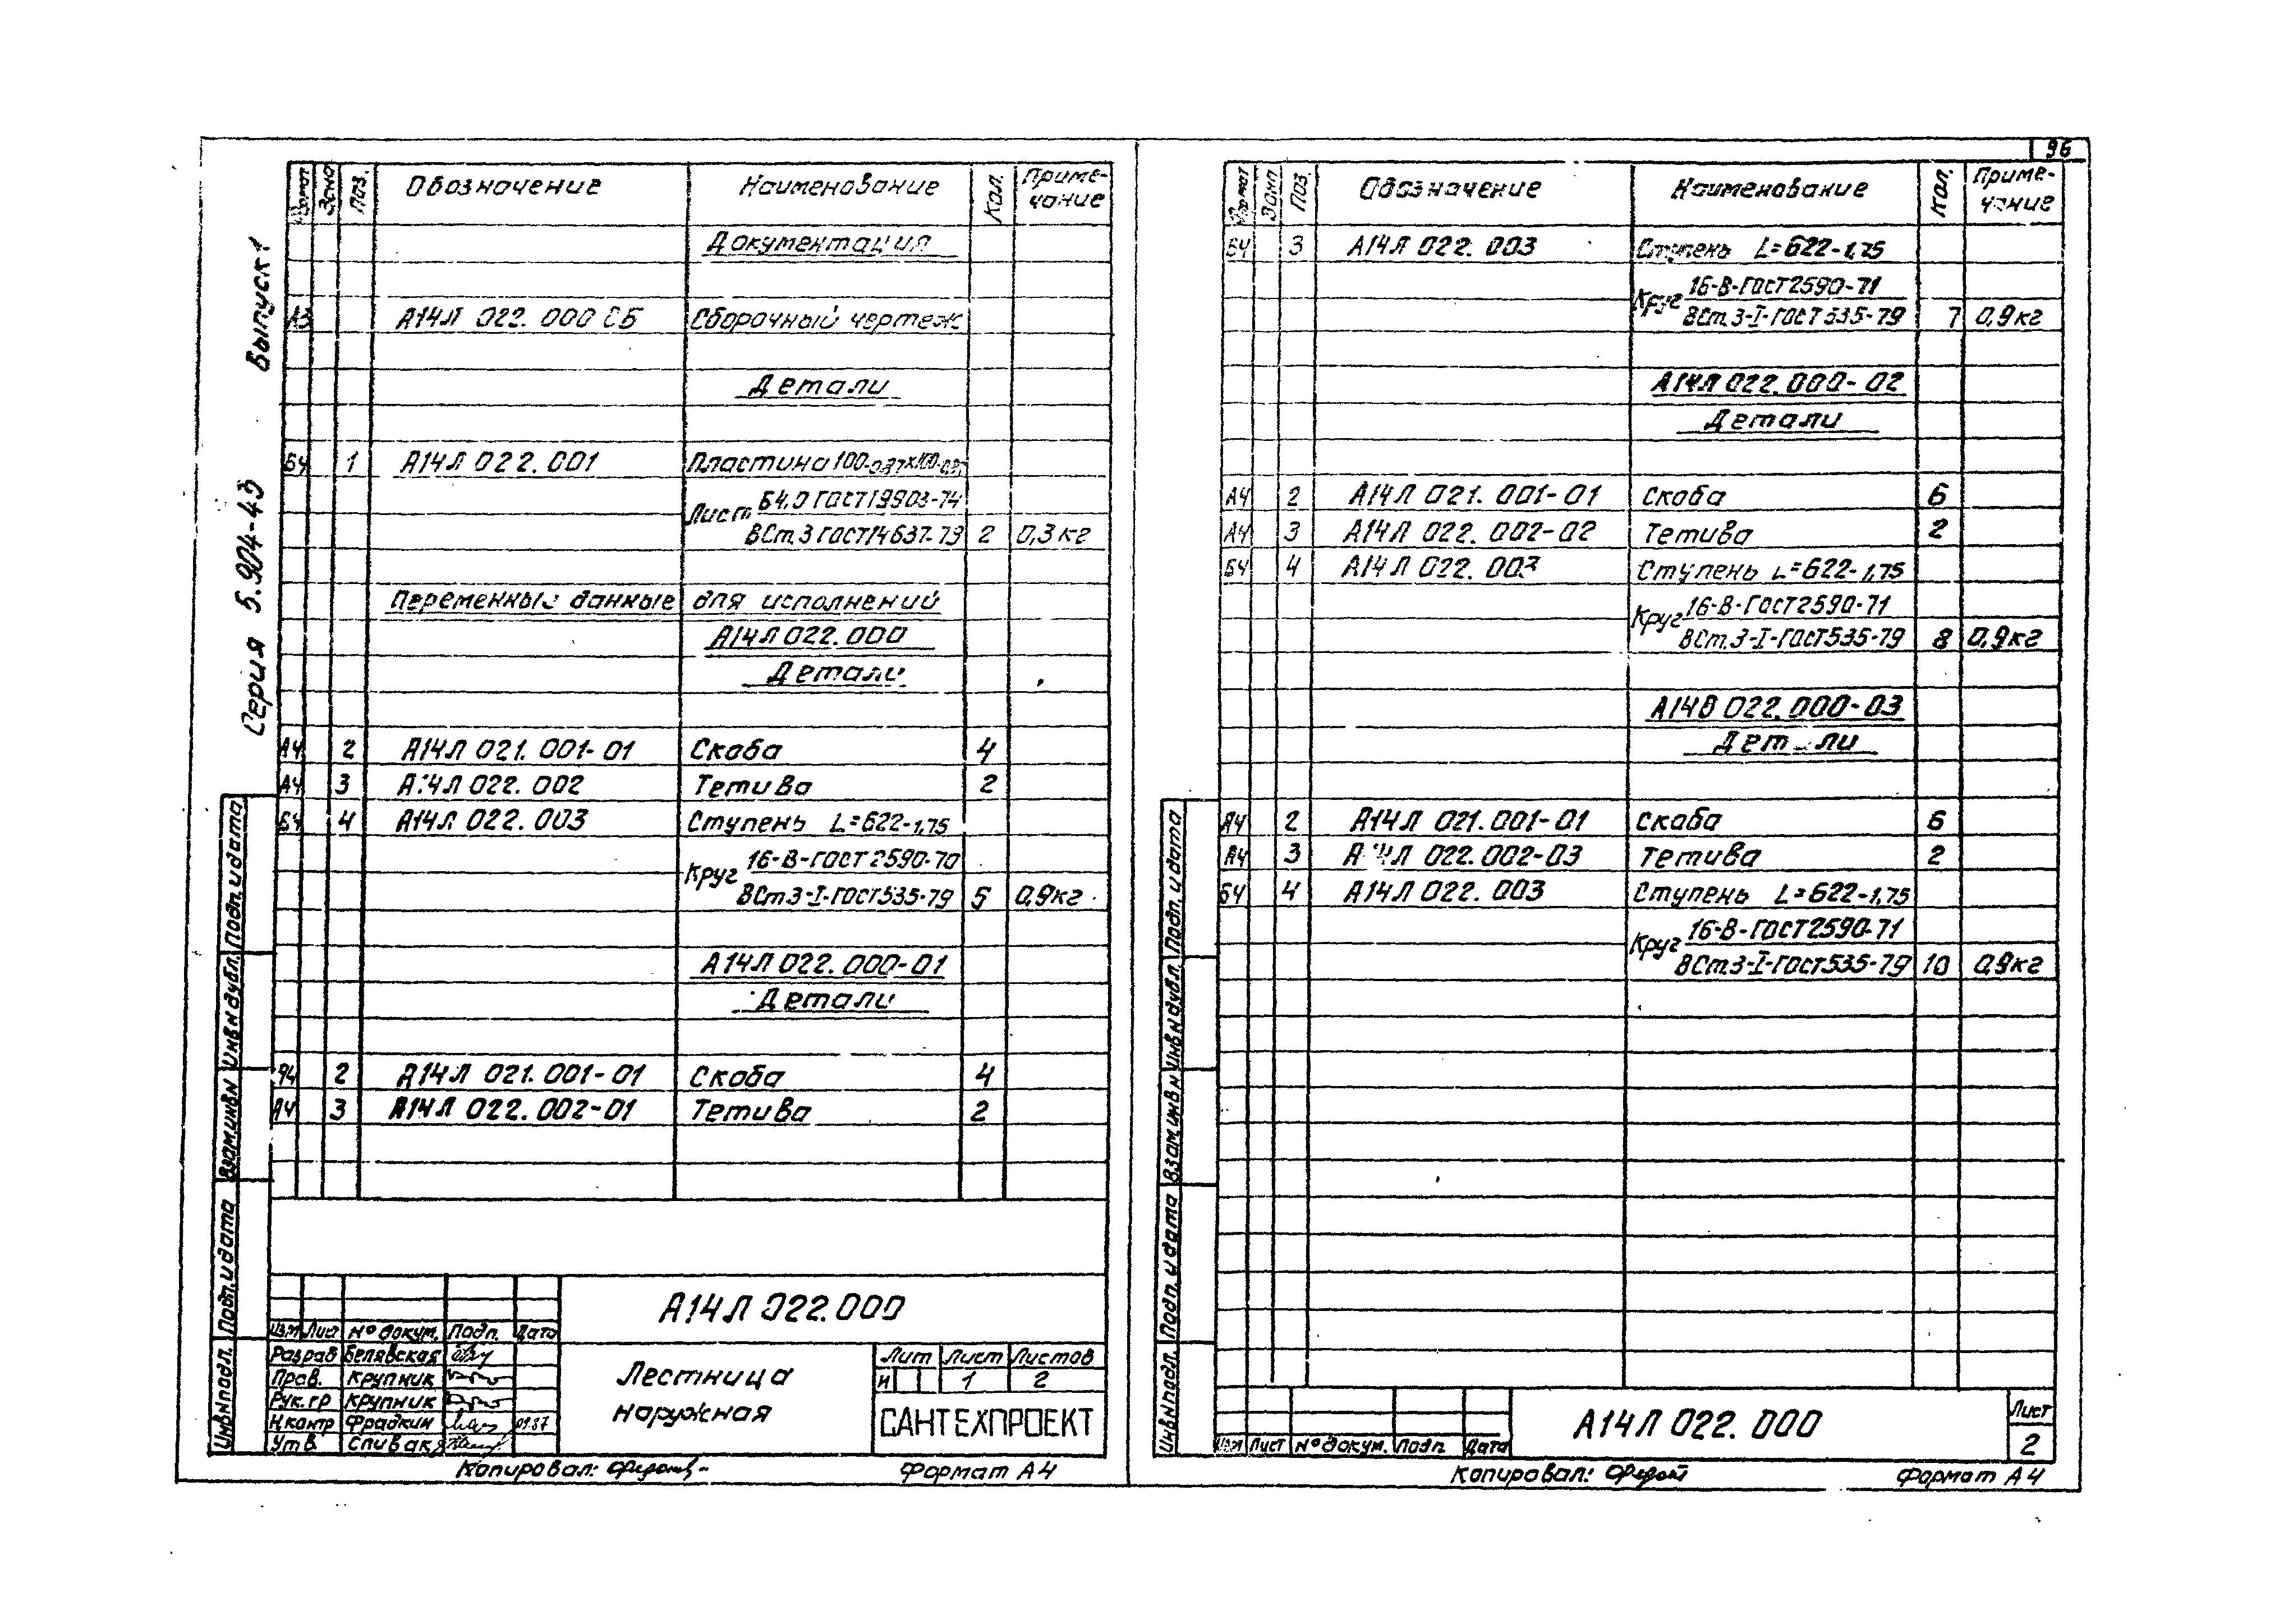 96
Серия 5.904-43 Выпуск 1
Формат Зона Поз. Обозначение Наименование Кол. Приме-
чание
Документация
А3 А14Л 022.000 СБ Сборочный чертеж
Детали
БЧ 1 А14Л 022.001 Пластина
Лист Б4,0 ГОСТ 19903-74
ВСт.3 ГОСТ 14637-79 2 0,3 кг
Переменные данные для исполнений
А14Л 022.000
Детали
А4 2 А14Л 021.001-01 Скоба 4
А4 3 А14Л 022.002 Тетива 2
БЧ 4 А14Л 022.003 Ступень L=622-1,75
Круг 16-В-ГОСТ 2590-70
ВСт.3-I-ГОСТ 535-79 5 0,9кг
А14Л 022.000-01
Детали
А4 2 А14Л 021.001-01 Скоба 4
А4 3 А14Л 022.002-01 Тетива 2
Инв№подл. Подп. и дата Взам.инв№ Инв№дубл. Подп. и дата
А14Л 022.000
Изм Лист №докум. Подп. Дата
Разраб Белявская
Пров. Крупник
Рук.гр Крупник
Н.контр Фрадкин 01.87
Утв. Спивак
Лестница
наружная
Лит Лист Листов
И 1 2
САНТЕХПРОЕКТ
Копировал: Формат А4
Формат Зона Поз. Обозначение Наименование Кол. Приме-
чание
БЧ 3 А14Л 022.003 Ступень L=622-1,75
Круг 16-В-ГОСТ 2590-71
ВСт.3-I-ГОСТ 535-79 7 0,9кг
А14Л 022.000-02
Детали
А4 2 А14Л 021.001-01 Скоба 6
А4 3 А14Л 022.002-02 Тетива 2
БЧ 4 А14Л 022.003 Ступень L=622-1,75
Круг 16-В-ГОСТ 2590-71
ВСт.3-I-ГОСТ 535-79 8 0,9кг
А14В 022.000-03
Детали
А4 2 А14Л 021.001-01 Скоба 6
А4 3 А14Л 022.002-03 Тетива 2
БЧ 4 А14Л 022.003 Ступень L=622-1,75
Круг 16-В-ГОСТ 2590-71
ВСт.3-I-ГОСТ 535-79 10 0,9кг
Инв№подл. Подп. и дата Взам.инв№ Инв№дубл. Подп. и дата
Изм Лист №докум. Подп Дата
А14Л 022.000
Лист
2
Копировал: Формат А4